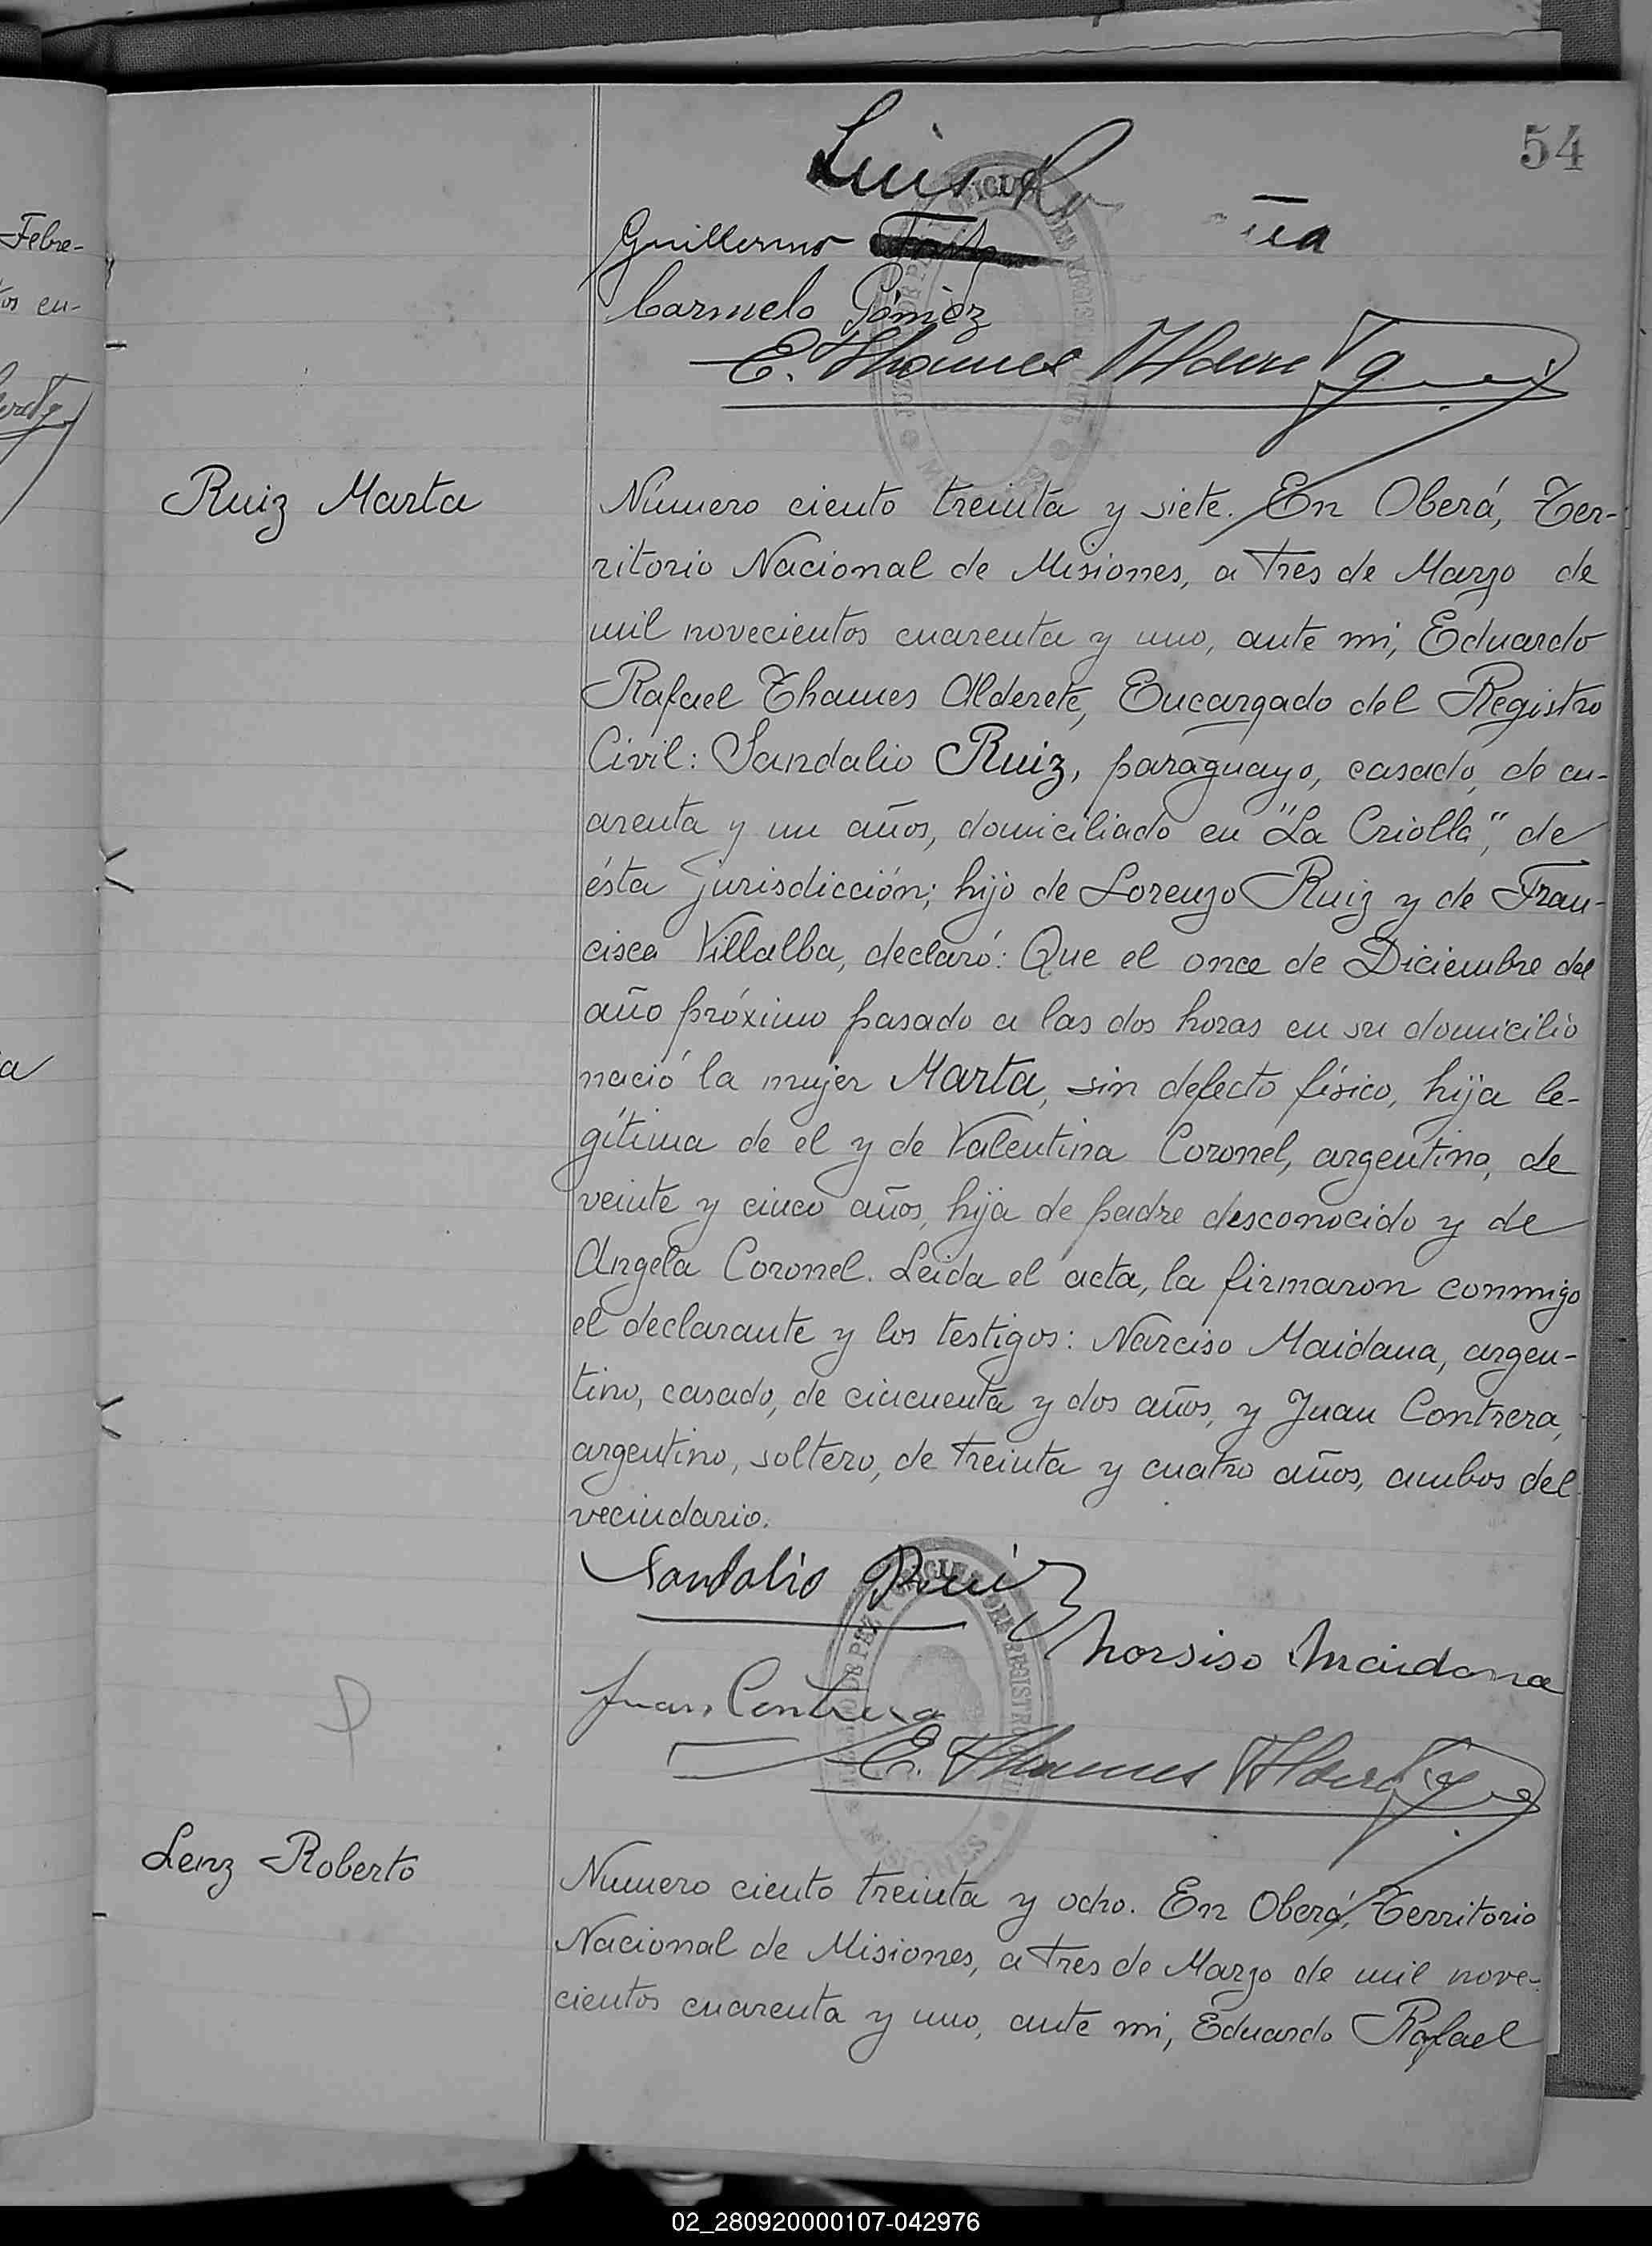 54
Luis
Guillermo
Carmelo Gómez
E. Thames Alderete
Febre-
os cu-
Ruiz Marta
Número ciento treinta y siete. En Oberá, Ter-
ritorio Nacional de Misiones, a tres de Marzo de
mil novecientos cuarenta y uno, ante mi, Eduardo
Rafael Thames Alderete, Encargado del Registro
Civil: Sandalio Ruiz, paraguayo, casado, de cu-
arenta y un años, domiciliado en "La Criolla", de
ésta jurisdicción; hijo de Lorenzo Ruiz y de Fran-
cisca Villalba, declaró: Que el once de Diciembre del
año próximo pasado a las dos horas en su domicilio
nació la mujer Marta, sin defecto físico, hija le-
gítima de el y de Valentina Coronel, argentina, de
veinte y cinco años, hija de padre desconocido y de
Angela Coronel. Leida el acta, la firmaron conmigo
el declarante y los testigos: Narciso Maidana, argen-
tino, casado, de cincuenta y dos años, y Juan Contrera,
argentino, soltero, de treinta y cuatro años, ambos del
vecindario.
Sandalio Ruiz
Narsiso Maidana
Juan Contrera
E. Thames Alderete
Lenz Roberto
Numero ciento treinta y ocho. En Oberá, Territorio
Nacional de Misiones, a tres de Marzo de mil nove-
cientos cuarenta y uno, ante mi, Eduardo Rafael
02_280920000107-042976